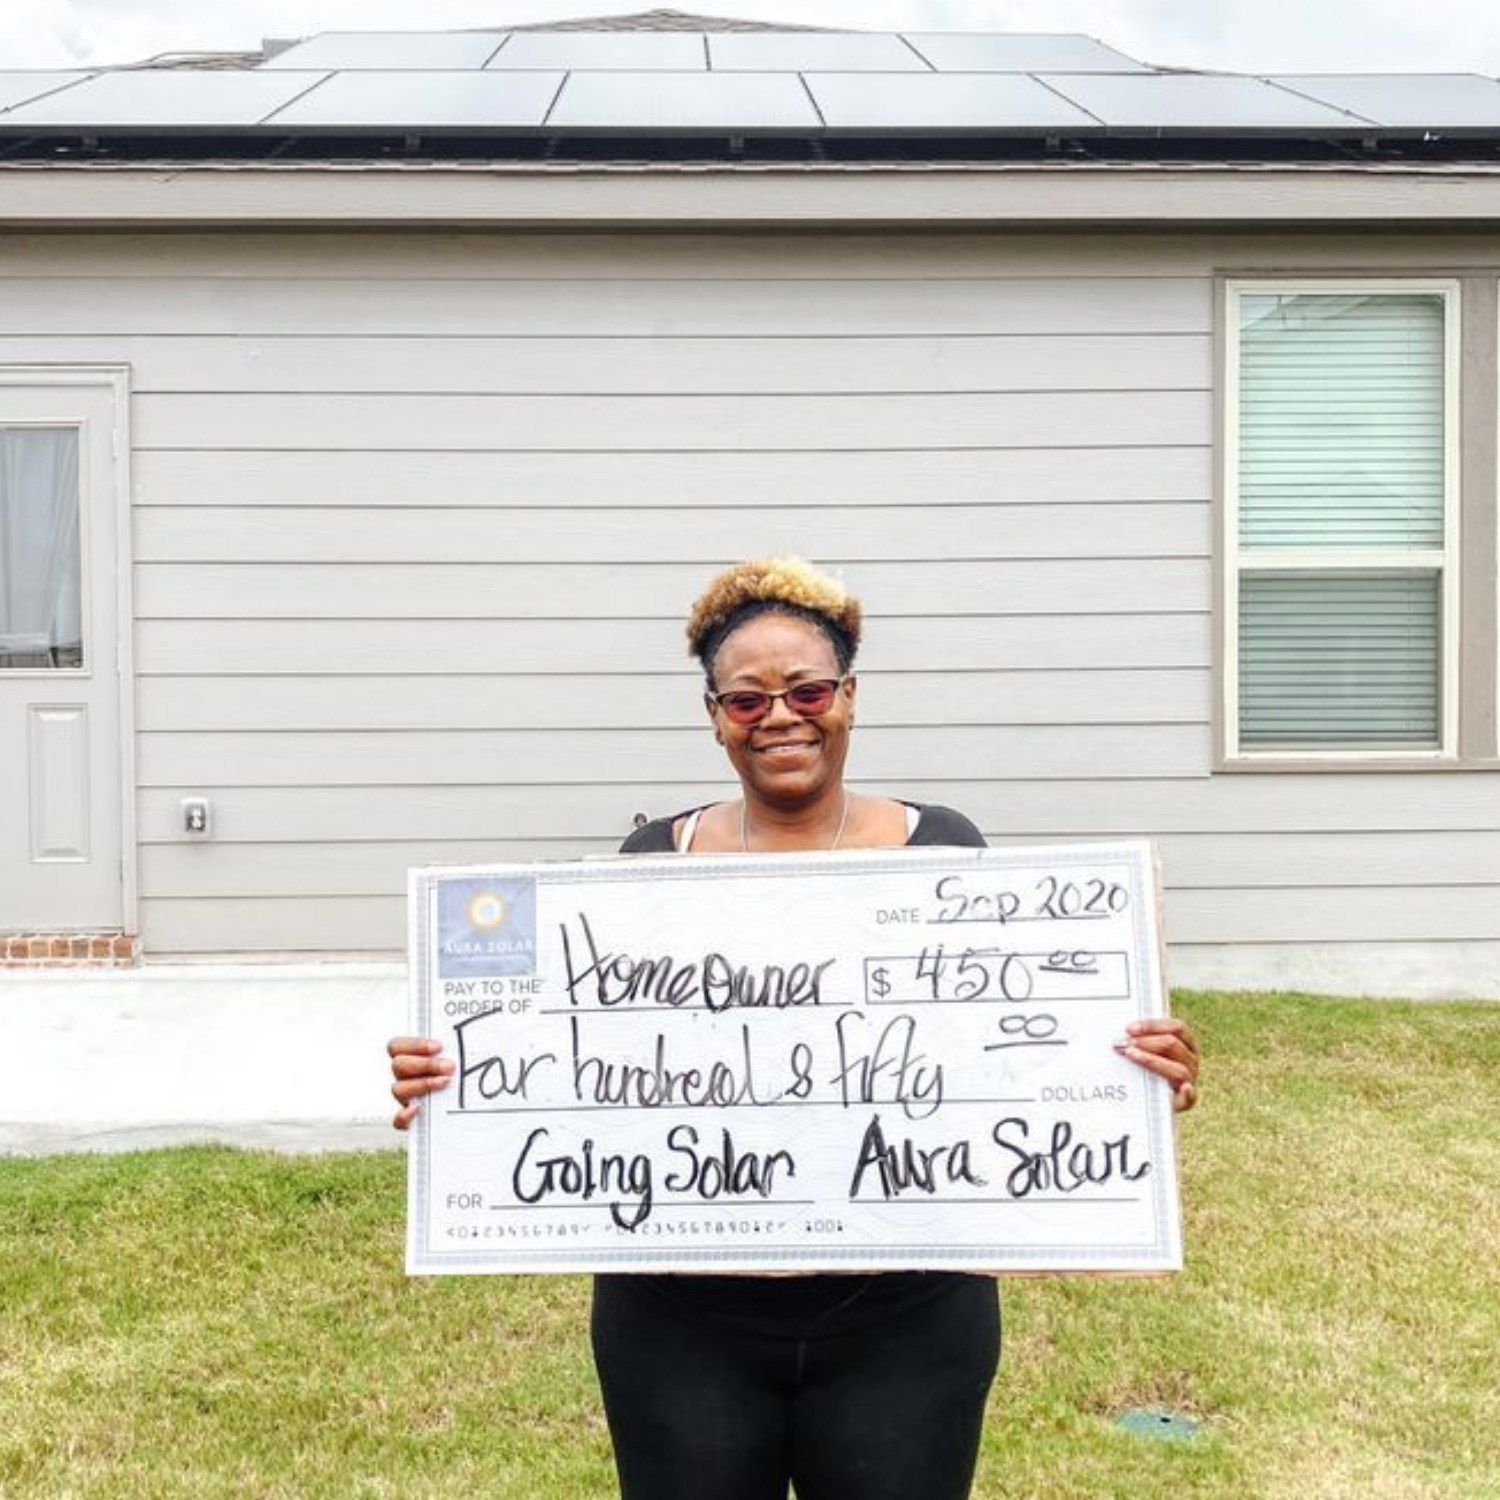 DATE Sep 2020
AURA SOLAR
PAY TO THE ORDER OF Home Owner $ 450 00
Four hundred & fifty 00 DOLLARS
FOR Going Solar Aura Solar